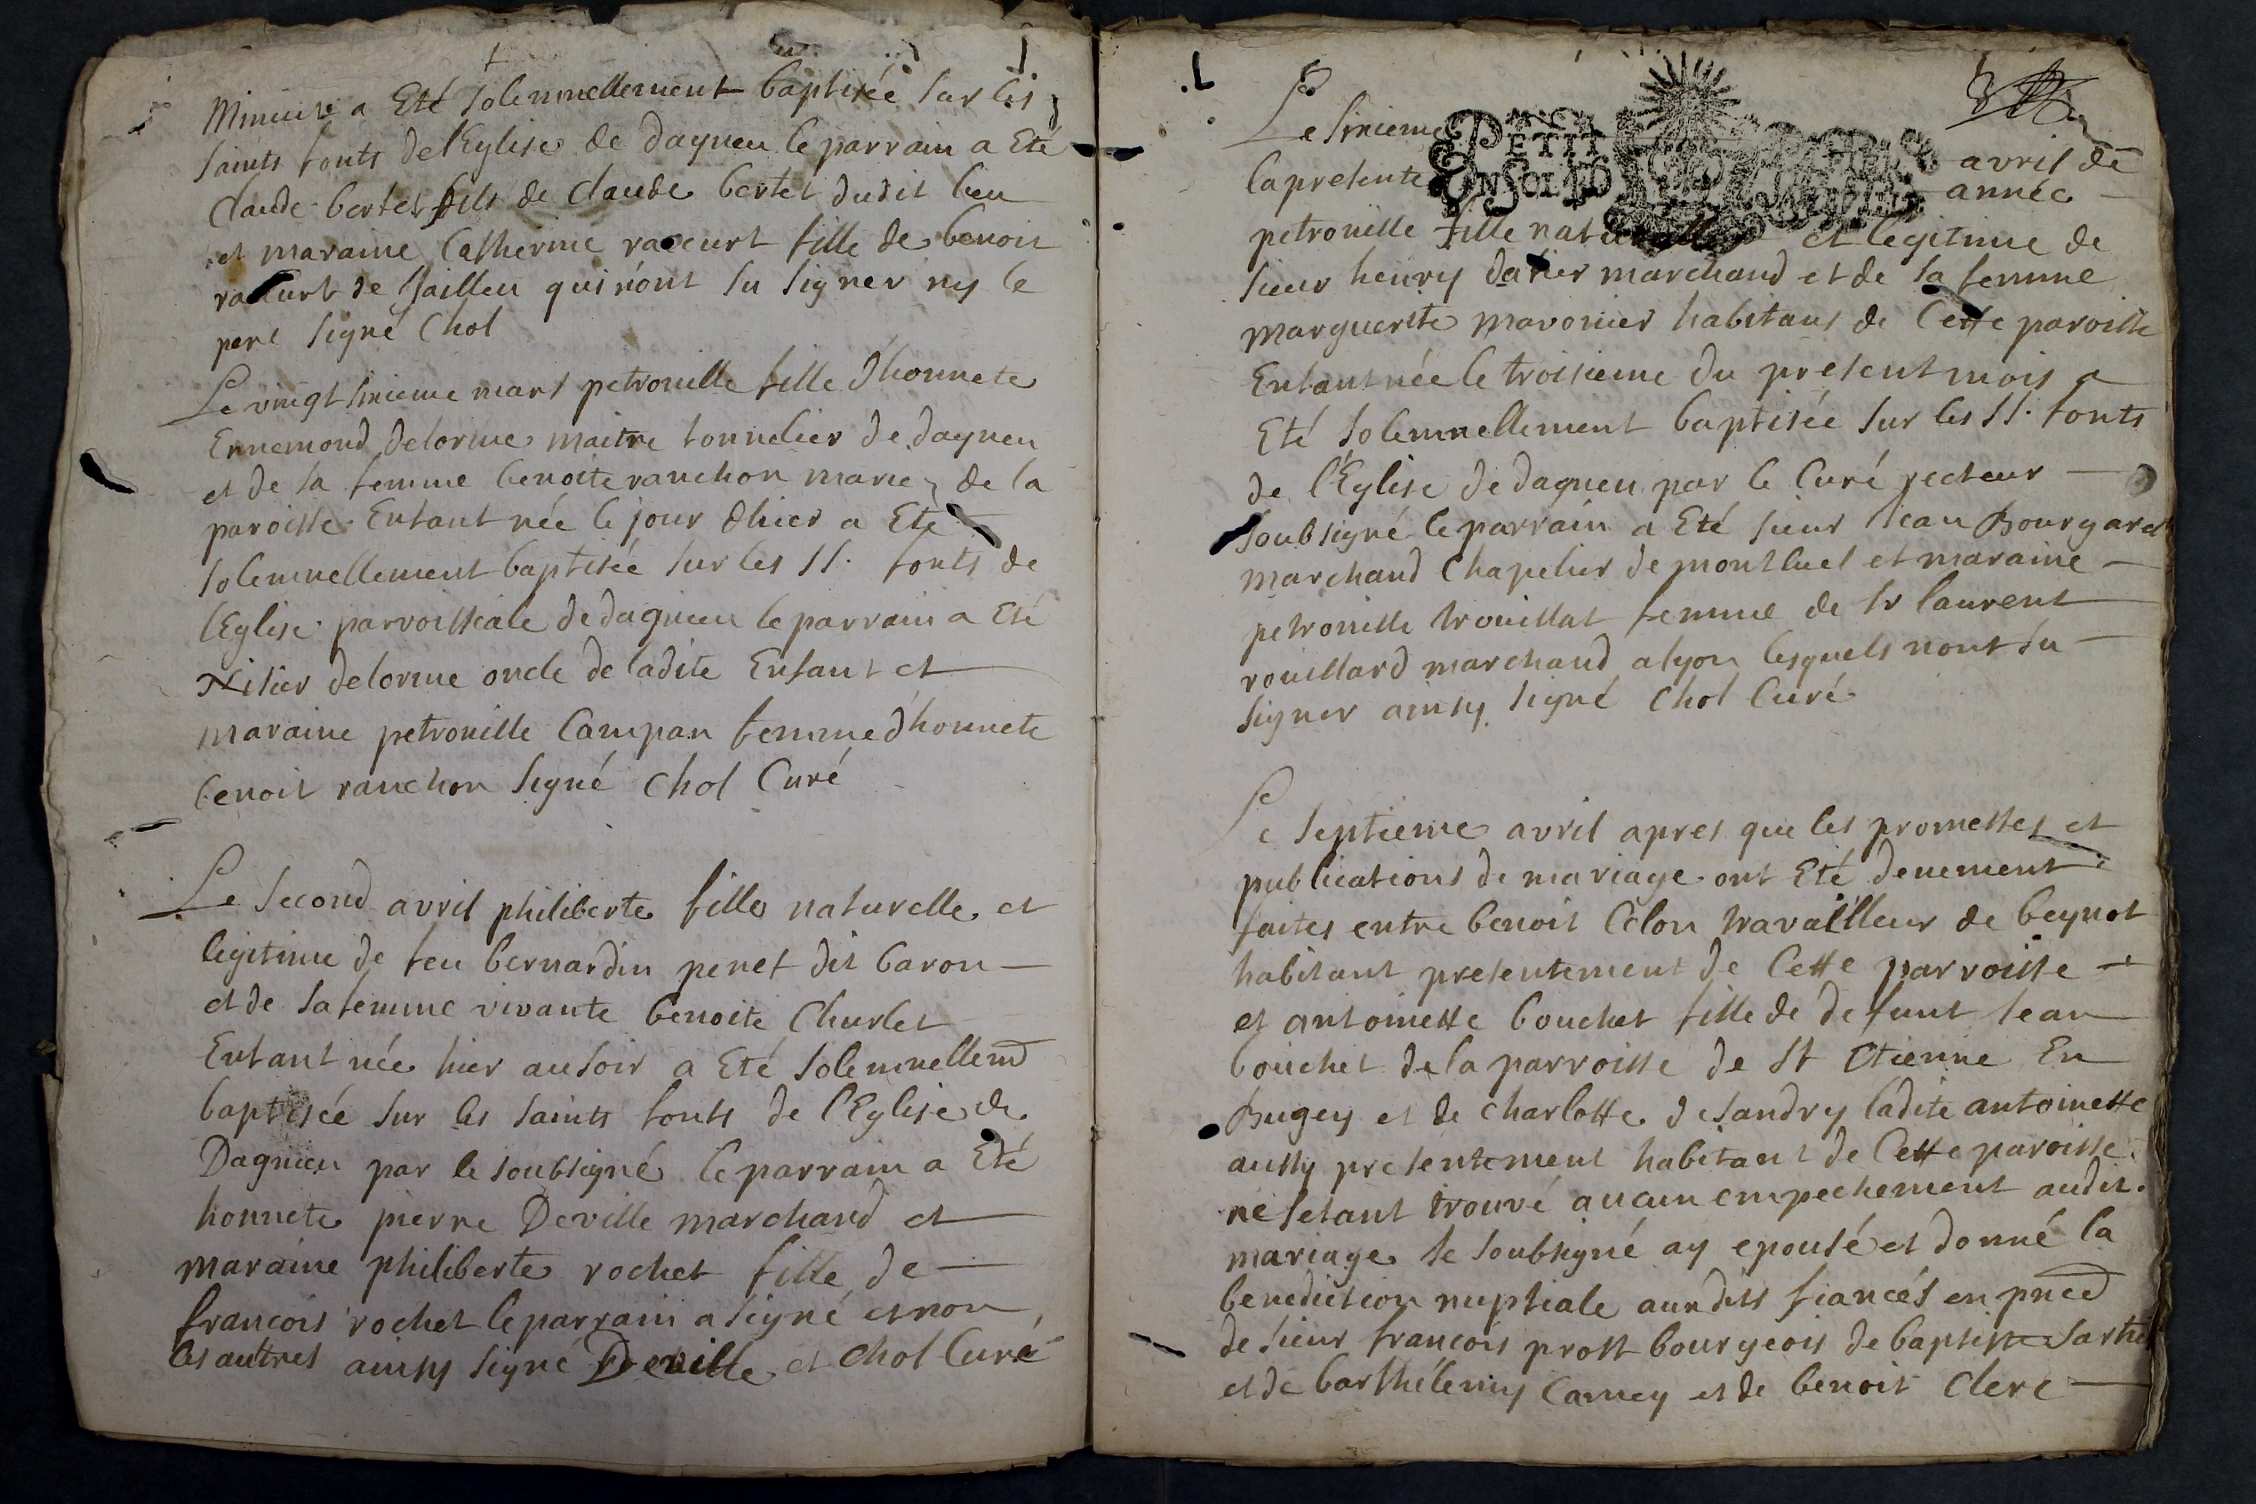 Minuite a Eté solemnellement baptisée sur les
saints fonts de l'Eglise de dagneu le parrain a Eté
Claude bertet fils de Claude bertet dudit lieu
et maraine Catherine fille de benoit
de qui n'ont su signer ny le
pere signé Chol
Le vingt sixieme mars petronille fille d'honnete
Ennemond delorme maitre tonnelier de dagneu
et de sa femme benoite ranchon mariez de la
paroisse Enfant née le jour d'hier a Eté
solemnellement baptisée sur les SS. fonts de
l'Eglise parroissiale de dagnieu le parrain a Eté
Nisier delorme oncle de ladite Enfant et
maraine petronille Campan femme d'honnete
benoit ranchon signé Chol Curé
Le second avril philiberte fille naturelle et
legitime de feu bernardin penet dit baron
et de sa femme vivante benoite Churlet
Enfant née hier au soir a Eté solemnellemt
baptisée sur les saints fonts de l'Eglise de
Dagnieu par le soubsigné le parrain a Eté
honnete pierre Deville marchand et
maraine philiberte rochet fille de
francois rochet le parrain a signé et non
les autres ainsy signé Deville et Chol Curé
Le sixieme avril de
la presente année
PETIT PAP
EN SOLDO
petronille fille naturelle et legitime de
sieur henry marchand et de sa femme
marguerite mavonier habitans de Cette paroisse
Enfant née le troisieme du present mois a
Eté solemnellement baptisée sur les SS. fonts
de l'Eglise de dagneu par le Curé recteur
soubsigné le parrain a Eté sieur Jean Bourgard
marchand Chapelier de montluel et maraine
petronille trouillat femme de sr laurent
rouillard marchand a lyon lesquels n'ont su
signer ainsy signé Chol Curé
Le septieme avril apres que les promesses et
publications de mariage ont Eté deuement
faites entre benoit Colon travailleur de beynot
habitant presentement de Cette parroisse
et antoinette bouchet fille de defunt Jean
bouchet de la parroisse de St Etienne En
Bugey et de Charlotte desandry ladite antoinette
aussy presentement habitant de Cette paroisse
ne s'etant trouvé aucun empechement audit
mariage Je soubsigné ay epousé et donné la
benediction nuptiale auxdits fiancés en pnce
de sieur francois prost bourgeois de baptiste
et de barthélemy Carney et de benoit Clerc